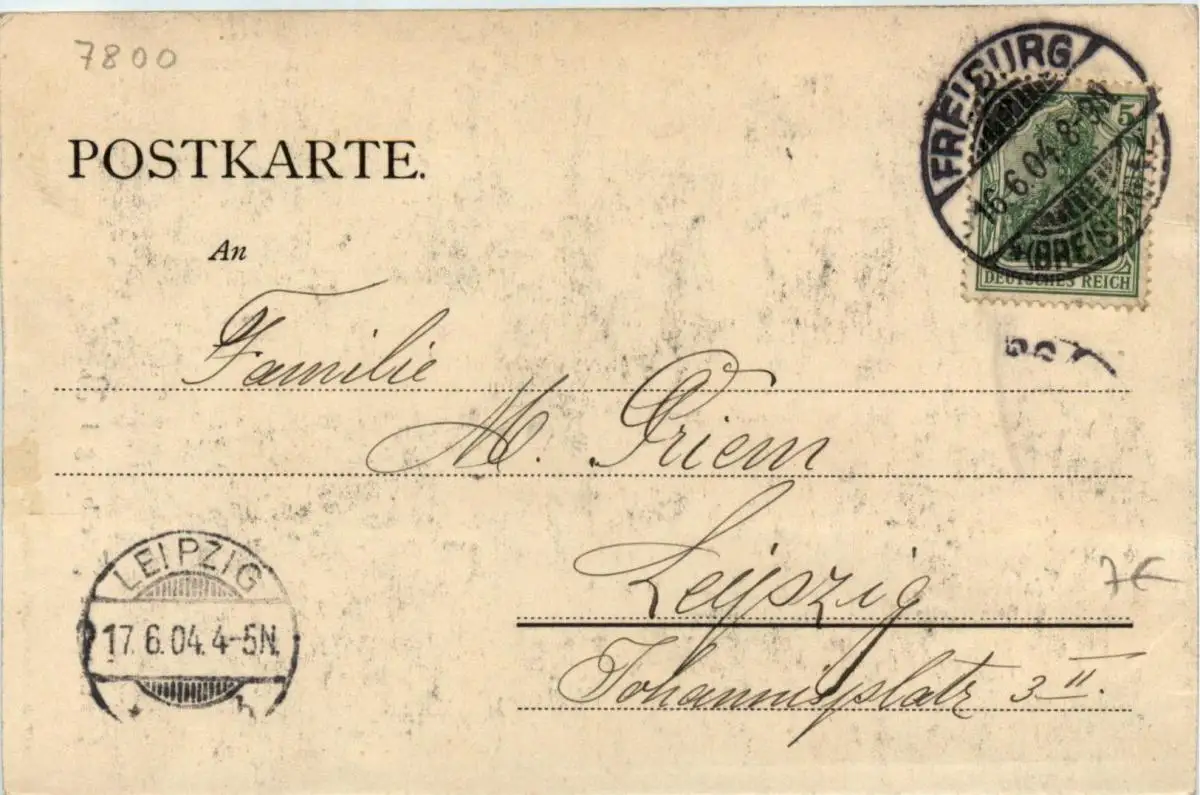 7800
FREIBURG
16.6.04.8-9N.
(BREISGAU)
5
DEUTSCHES REICH
POSTKARTE.
An
Familie
M. Priem
Leipzig
Johannisplatz 3 II.
7€
LEIPZIG
17.6.04.4-5N.